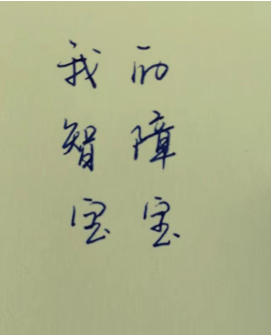 我的
智障
宝宝